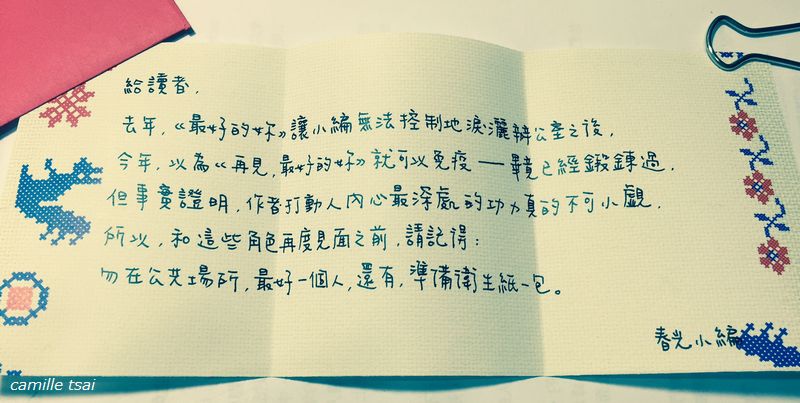 給讀者,
去年,《最好的妳》讓小編無法控制地淚灑辦公室之後,
今年,以為《再見,最好的妳》就可以免疫──畢竟已經鍛鍊過,
但事實證明,作者打動人內心最深處的功力真的不可小覷,
所以,和這些角色再度見面之前,請記得:
勿在公共場所,最好一個人,還有,準備衛生紙一包。
春光小編
camille tsai